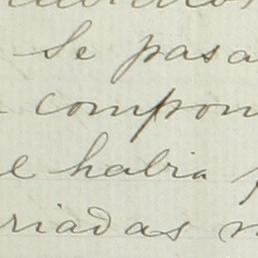 Se pasa
compon
e habia
riadas